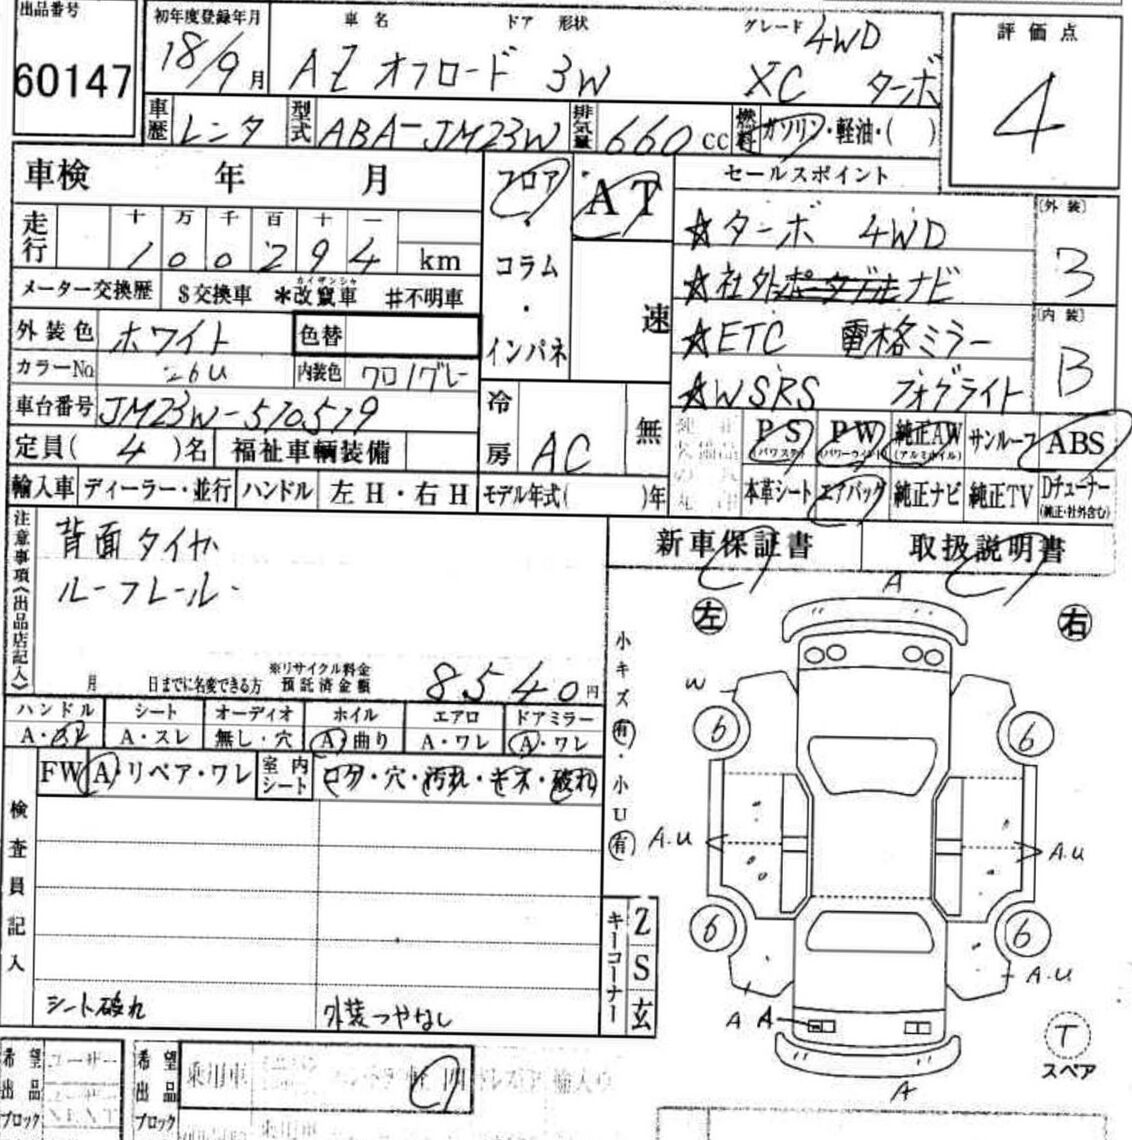 出品番号
60147
初年度登録年月
18/9月
車名 ドア 形状 グレード
AZオフロード 3W
4WD
XC ターボ
評価点
4
車歴 レンタ 型式 ABA-JM23W 排気量 660cc 燃料 ガソリン・軽油・( )
車検 年 月
フロア・コラム・インパネ
AT
速
セールスポイント
☆ターボ 4WD
☆社外ナビ
☆ETC 電格ミラー
☆WSRS フォグライト
〔外装〕
3
〔内装〕
B
走行 十万千百十一
100294 km
メーター交換歴 $交換車 *改竄車 #不明車
カイザンシャ
外装色 ホワイト 色替
カラーNo. 26U 内装色 クロ/グレー
車台番号 JM23W-570579
定員( 4 )名 福祉車輌装備
冷房 AC 無
PS (パワステ) PW (パワーウインド) 純正AW (アルミホイル) サンルーフ ABS
本革シート エアバッグ 純正ナビ 純正TV Dチューナー (純正・社外含む)
輸入車 ディーラー・並行 ハンドル 左H・右H モデル年式( )年
新車保証書 取扱説明書
注意事項《出品店記入》
背面タイヤ
ルーフレール
月 日までに名変できる方 ※リサイクル料金預託済金額 8540円
ハンドル シート オーディオ ホイル エアロ ドアミラー
A・スレ A・スレ 無し・穴 A・曲り A・ワレ A・ワレ
FW A・リペア・ワレ 室内シート コゲ・穴・汚れ・キズ・破れ
検査員記入
シート破れ
外装つやなし
小キズ 有・小U 有
キーコーナー
2
S
玄
左 右
A
W
6 6
A.U A.U
6 6
A.U
A A
A
T
スペア
希望出品ブロック ユーザー
希望出品ブロック 乗用車 軽 四 輸入
乗用車